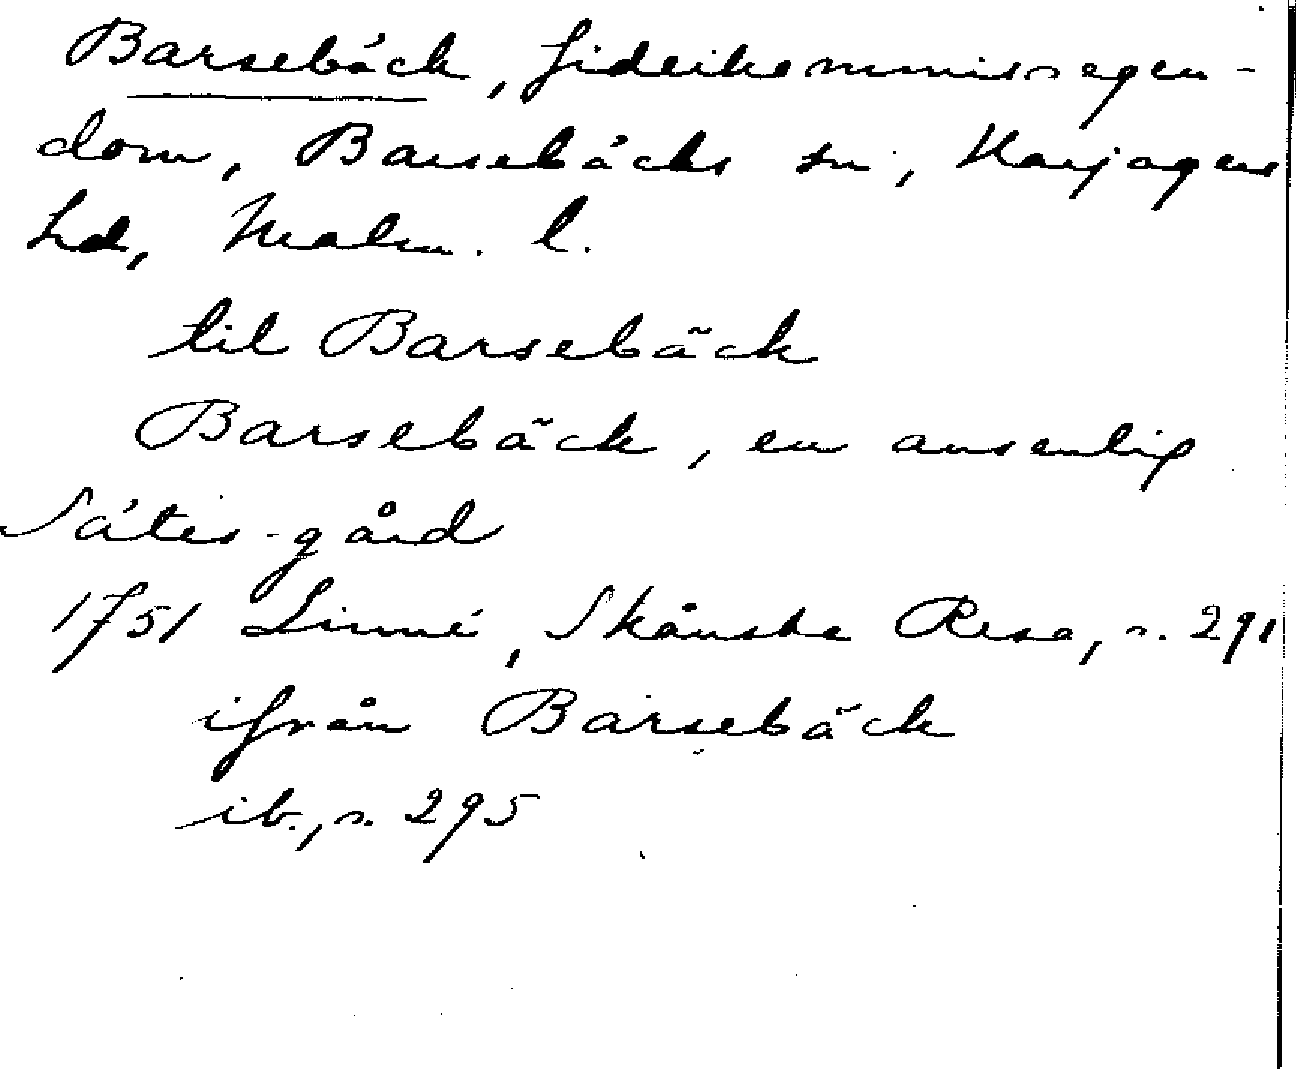 Barsebäck, fideikommissegen-
dom, Barsebäcks sn, Harjagers
hd, Malm. l.
til Barsebäck
Barsebäck, en ansenlig
Sätes-gård
1751 Linné, Skånska Resa, s. 291
ifrån Barsebäck
ib., s. 295